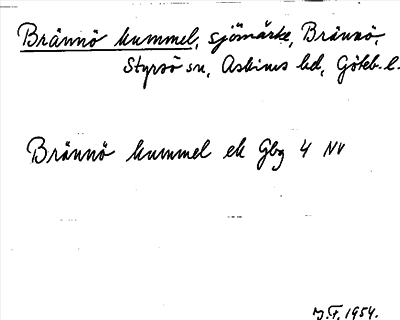 Brännö kummel, sjömärke, Brännö,
Styrsö sn, Askims hd, Göteb. l.
Brännö kummel ek Gbg 4 NV
J.F. 1954.